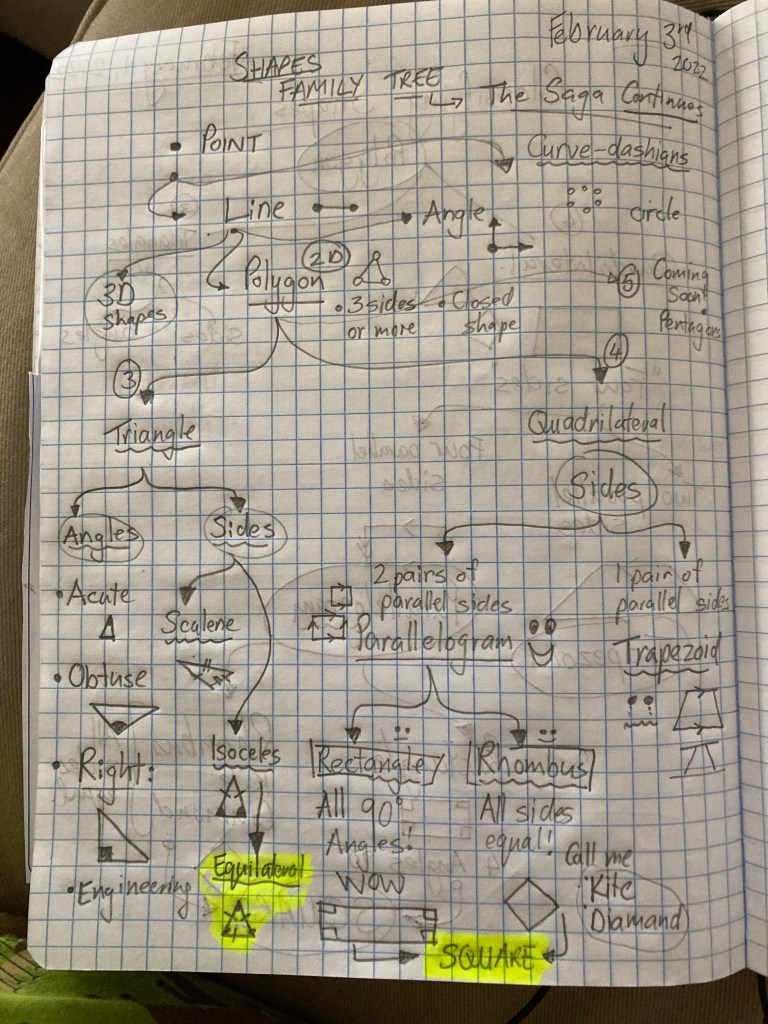 February 3rd
2022
SHAPES
FAMILY TREE
The Saga Continues
• POINT
Curve-dashians
Line
• Angle
circle
2D
3D
Shapes
Polygon
• 3 sides
or more
• Closed
shape
5
Coming
Soon!
Pentagons
3
4
Triangle
Quadrilateral
Sides
Angles
Sides
2 pairs of
parallel sides
Parallelogram
1 pair of
parallel sides
Trapezoid
• Acute
Scalene
• Obtuse
• Right:
Isoceles
Rectangle
Rhombus
All 90°
Angles!
WOW
All sides
equal!
Call me
Kite
Diamand
Equilateral
• Engineering
SQUARE